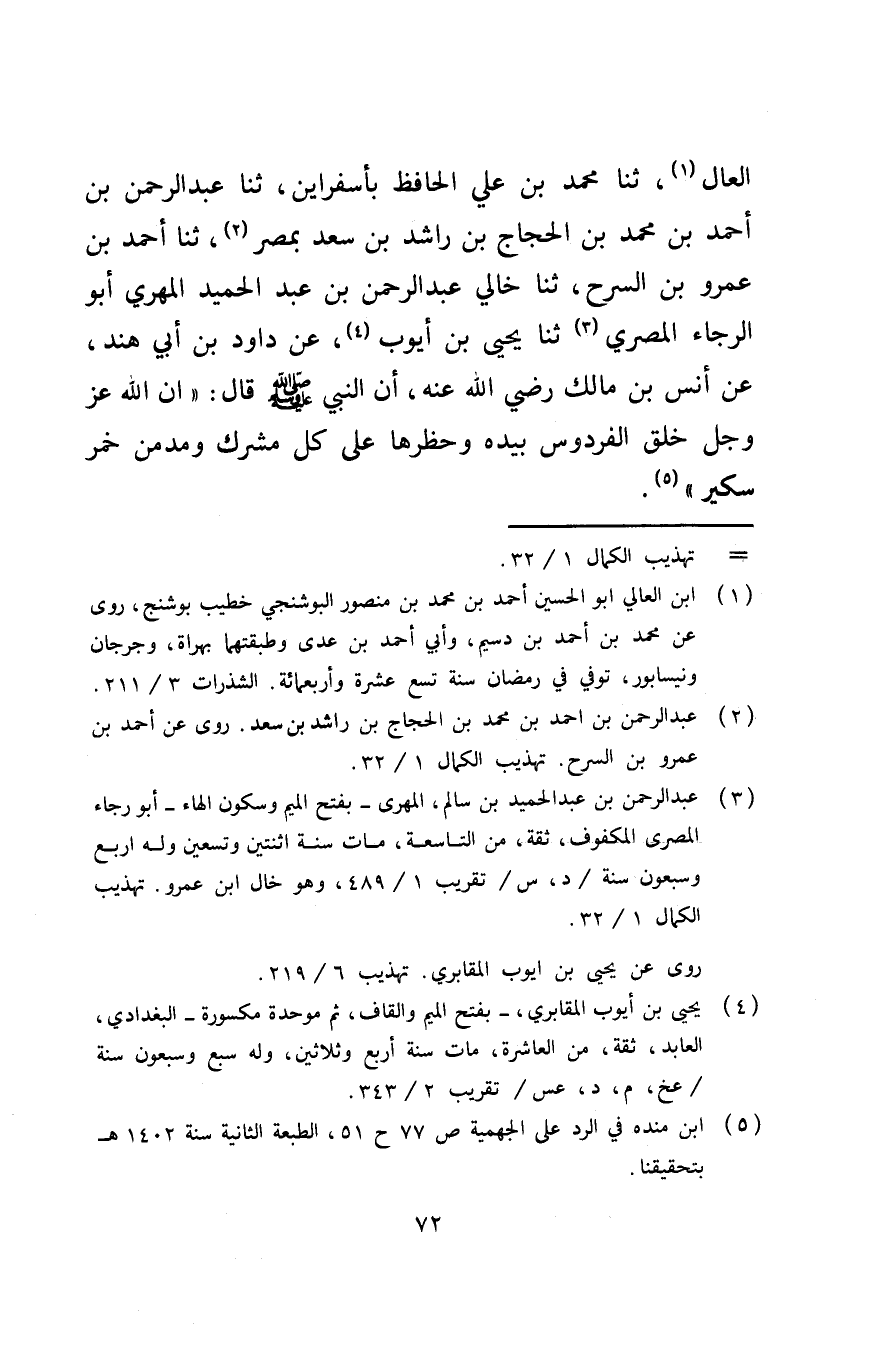 العال (١) ، ثنا محمد بن علي الحافظ بأسفراين ، ثنا عبدالرحمن بن
أحمد بن محمد بن الحجاج بن راشد بن سعد بمصر (٢) ، ثنا أحمد بن
عمرو بن السرح ، ثنا خالي عبدالرحمن بن عبد الحميد المهري أبو
الرجاء المصري (٣) ثنا يحيى بن أيوب (٤) ، عن داود بن أبي هند ،
عن أنس بن مالك رضي الله عنه ، أن النبي ﷺ قال : « ان الله عز
وجل خلق الفردوس بيده وحظرها على كل مشرك ومدمن خمر
سكير » (٥) .
= تهذيب الكمال ١ / ٣٢ .
(١) ابن العالي ابو الحسين أحمد بن محمد بن منصور البوشنجي خطيب بوشنج ، روى
عن محمد بن أحمد بن دسيم ، وأبي أحمد بن عدى وطبقتهما بهراة ، وجرجان
ونيسابور ، توفي في رمضان سنة تسع عشرة وأربعمائة . الشذرات ٣ / ٢١١ .
(٢) عبدالرحمن بن احمد بن محمد بن الحجاج بن راشد بن سعد . روى عن أحمد بن
عمرو بن السرح . تهذيب الكمال ١ / ٣٢ .
(٣) عبدالرحمن بن عبدالحميد بن سالم ، المهرى ـ بفتح الميم وسكون الهاء ـ أبو رجاء
المصرى المكفوف ، ثقة ، من التاسعة ، مات سنة اثنتين وتسعين وله اربع
وسبعون سنة / د ، س / تقريب ١ / ٤٨٩ ، وهو خال ابن عمرو . تهذيب
الكمال ١ / ٣٢ .
روى عن يحيى بن ايوب المقابري . تهذيب ٦ / ٢١٩ .
(٤) يحيى بن أيوب المقابري ، ـ بفتح الميم والقاف ، ثم موحدة مكسورة ـ البغدادي ،
العابد ، ثقة ، من العاشرة ، مات سنة أربع وثلاثين ، وله سبع وسبعون سنة
/ عخ ، م ، د ، عس / تقريب ٢ / ٣٤٣ .
(٥) ابن منده في الرد على الجهمية ص ٧٧ ح ٥١ ، الطبعة الثانية سنة ١٤٠٢ هـ
بتحقيقنا .
٧٢